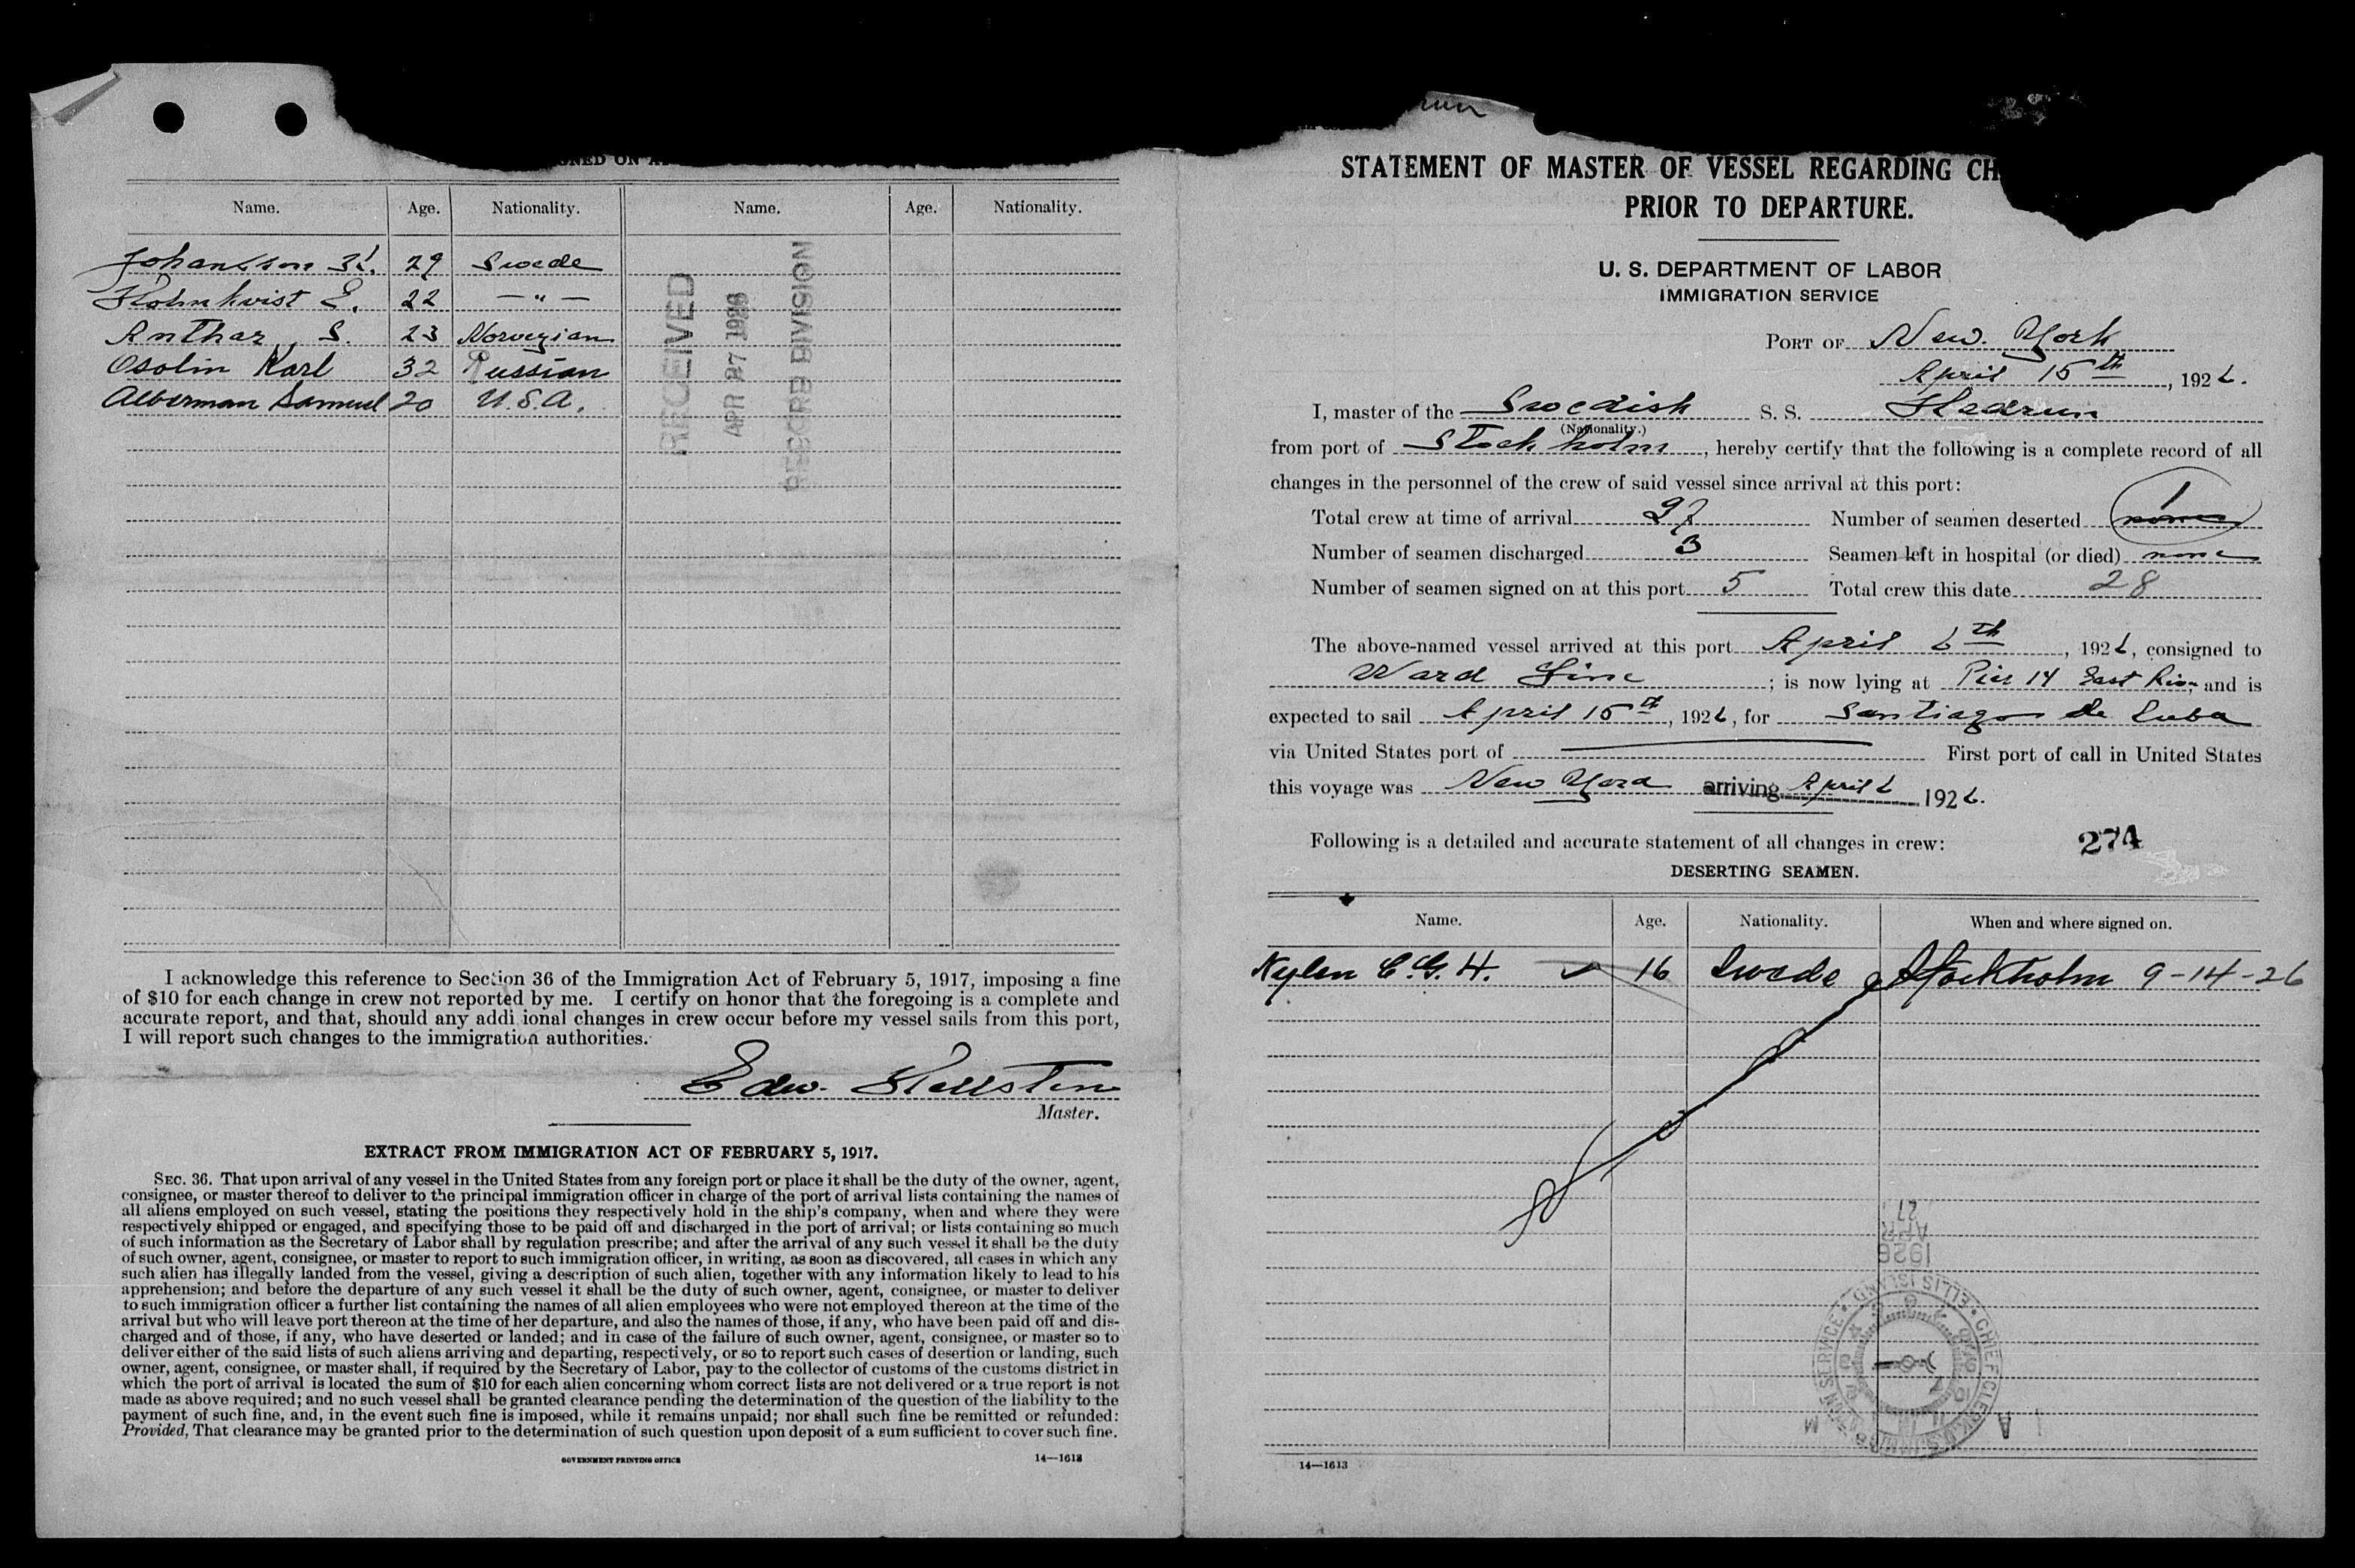 SIGNED ON AT
Name. Age. Nationality. Name. Age. Nationality.
Johansson 29 Swede
Holmkvist E. 22 — " —
Anthar, S. 23 Norwegian
Osolin Karl 32 Russian
Alberman Samuel 20 U.S.A.
RECEIVED
APR 27 1926
RECORD DIVISION
I acknowledge this reference to Section 36 of the Immigration Act of February 5, 1917, imposing a fine
of $10 for each change in crew not reported by me. I certify on honor that the foregoing is a complete and
accurate report, and that, should any addi ional changes in crew occur before my vessel sails from this port,
I will report such changes to the immigration authorities.
Edw. Hellsten
Master.
EXTRACT FROM IMMIGRATION ACT OF FEBRUARY 5, 1917.
SEC. 36. That upon arrival of any vessel in the United States from any foreign port or place it shall be the duty of the owner, agent,
consignee, or master thereof to deliver to the principal immigration officer in charge of the port of arrival lists containing the names of
all aliens employed on such vessel, stating the positions they respectively hold in the ship's company, when and where they were
respectively shipped or engaged, and specifying those to be paid off and discharged in the port of arrival; or lists containing so much
of such information as the Secretary of Labor shall by regulation prescribe; and after the arrival of any such vessel it shall be the duty
of such owner, agent, consignee, or master to report to such immigration officer, in writing, as soon as discovered, all cases in which any
such alien has illegally landed from the vessel, giving a description of such alien, together with any information likely to lead to his
apprehension; and before the departure of any such vessel it shall be the duty of such owner, agent, consignee, or master to deliver
to such immigration officer a further list containing the names of all alien employees who were not employed thereon at the time of the
arrival but who will leave port thereon at the time of her departure, and also the names of those, if any, who have been paid off and dis-
charged and of those, if any, who have deserted or landed; and in case of the failure of such owner, agent, consignee, or master so to
deliver either of the said lists of such aliens arriving and departing, respectively, or so to report such cases of desertion or landing, such
owner, agent, consignee, or master shall, if required by the Secretary of Labor, pay to the collector of customs of the customs district in
which the port of arrival is located the sum of $10 for each alien concerning whom correct lists are not delivered or a true report is not
made as above required; and no such vessel shall be granted clearance pending the determination of the question of the liability to the
payment of such fine, and, in the event such fine is imposed, while it remains unpaid; nor shall such fine be remitted or refunded:
Provided, That clearance may be granted prior to the determination of such question upon deposit of a sum sufficient to cover such fine.
GOVERNMENT PRINTING OFFICE 14—1613
STATEMENT OF MASTER OF VESSEL REGARDING CH
PRIOR TO DEPARTURE.
U. S. DEPARTMENT OF LABOR
IMMIGRATION SERVICE
PORT OF New York
April 15th, 1926.
I, master of the Swedish S. S. Hedrun
(Nationality.)
from port of Stockholm, hereby certify that the following is a complete record of all
changes in the personnel of the crew of said vessel since arrival at this port:
1
Total crew at time of arrival 27 Number of seamen deserted none
Number of seamen discharged 3 Seamen left in hospital (or died) none
Number of seamen signed on at this port 5 Total crew this date 28
The above-named vessel arrived at this port April 6th, 1926, consigned to
Ward Line; is now lying at Pier 14 East Riv. and is
expected to sail April 15th, 1926, for Santiago de Cuba
via United States port of First port of call in United States
this voyage was New York arriving April 6 1926.
Following is a detailed and accurate statement of all changes in crew: 274
DESERTING SEAMEN.
Name. Age. Nationality. When and where signed on.
Nylen C.G.H. ✓ 16 Swede Stockholm 9-14-26
27
APR
1926
ELLIS ISLAND • CHIEF CLERK U.S. IMMIGRATION SERVICE
A M
14—1613